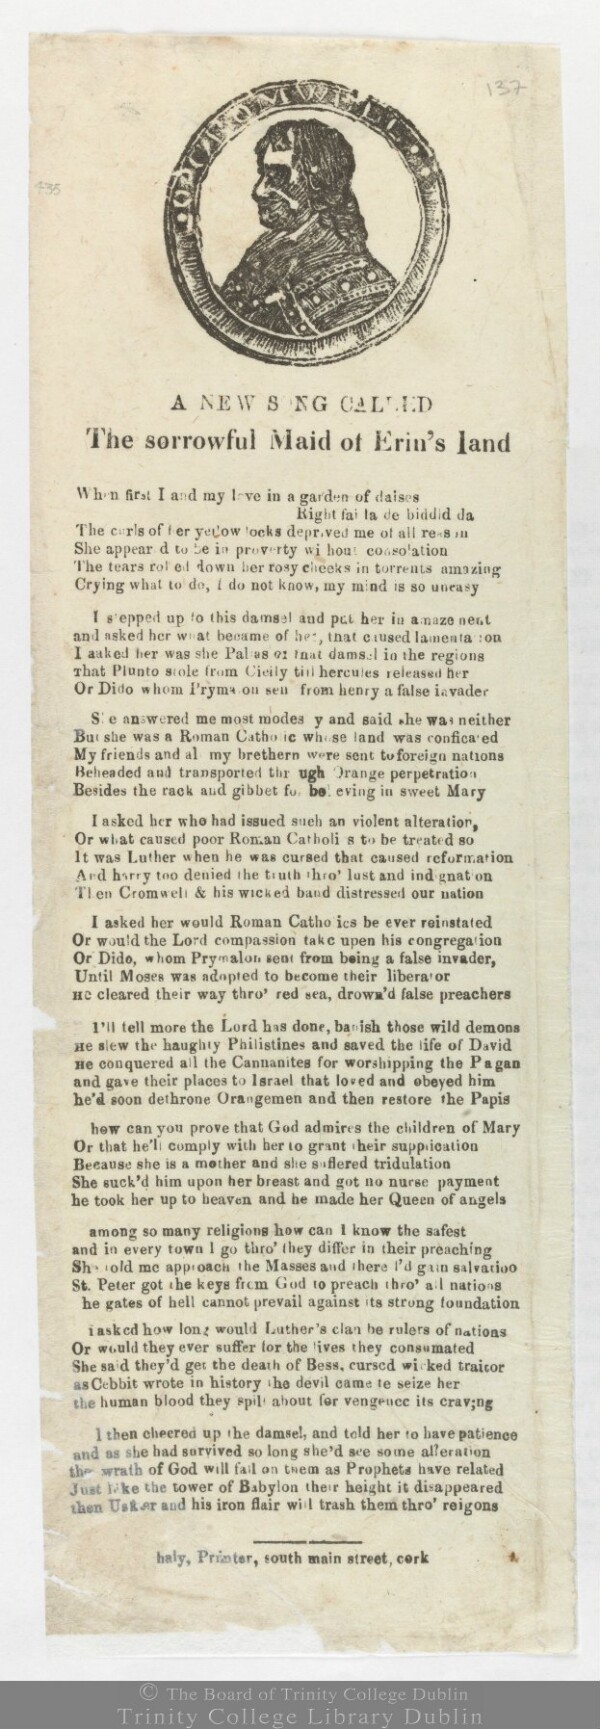 137
435
O. CROMWELL
A NEW SONG CALLED
The sorrowful Maid of Erin's land
When first I and my love in a garden of daises
Right fai la de biddid da
The curls of her yellow locks deprived me of all reason
She appeared to be in proverty without consolation
The tears rolled down her rosy cheeks in torrents amazing
Crying what to do, I do not know, my mind is so uneasy
I stepped up to this damsel and put her in amazement
and asked her what became of her, that caused lamentation
I asked her was she Pallas or that damsel in the regions
That Plunto stole from Cicily till hercules released her
Or Dido whom Prymalon sent from henry a false invader
She answered me most modestly and said she was neither
But she was a Roman Catholic whose land was conficated
My friends and all my brethern were sent to foreign nations
Beheaded and transported through Orange perpetration
Besides the rack and gibbet for believing in sweet Mary
I asked her who had issued such an violent alteration,
Or what caused poor Roman Catholics to be treated so
It was Luther when he was cursed that caused reformation
And harry too denied the truth thro' lust and indignation
Then Cromwell & his wicked band distressed our nation
I asked her would Roman Catholics be ever reinstated
Or would the Lord compassion take upon his congregation
Or Dido, whom Prymalon sent from being a false invader,
Until Moses was adopted to become their liberator
HE cleared their way thro' red sea, drown'd false preachers
I'll tell more the Lord has done, banish those wild demons
HE slew the haughty Philistines and saved the life of David
HE conquered all the Cannanites for worshipping the Pagan
and gave their places to Israel that loved and obeyed him
he'd soon dethrone Orangemen and then restore the Papis
how can you prove that God admires the children of Mary
Or that he'll comply with her to grant their supplication
Because she is a mother and she suffered tridulation
She suck'd him upon her breast and got no nurse payment
he took her up to heaven and he made her Queen of angels
among so many religions how can I know the safest
and in every town I go thro' they differ in their preaching
She told me approach the Masses and there I'd gain salvatioo
St. Peter got the keys from God to preach thro' all nations
he gates of hell cannot prevail against its strong foundation
i asked how long would Luther's clan be rulers of nations
Or would they ever suffer for the lives they consumated
She said they'd get the death of Bess, cursed wicked traitor
as Cebbit wrote in history the devil came te seize her
the human blood they spilt about for vengence its craving
I then cheered up the damsel, and told her to have patience
and as she had survived so long she'd see some alteration
the wrath of God will fall on them as Prophets have related
Just like the tower of Babylon their height it disappeared
then Usker and his iron flair will trash them thro' reigons
haly, Printer, south main street, cork
© The Board of Trinity College Dublin
Trinity College Library Dublin